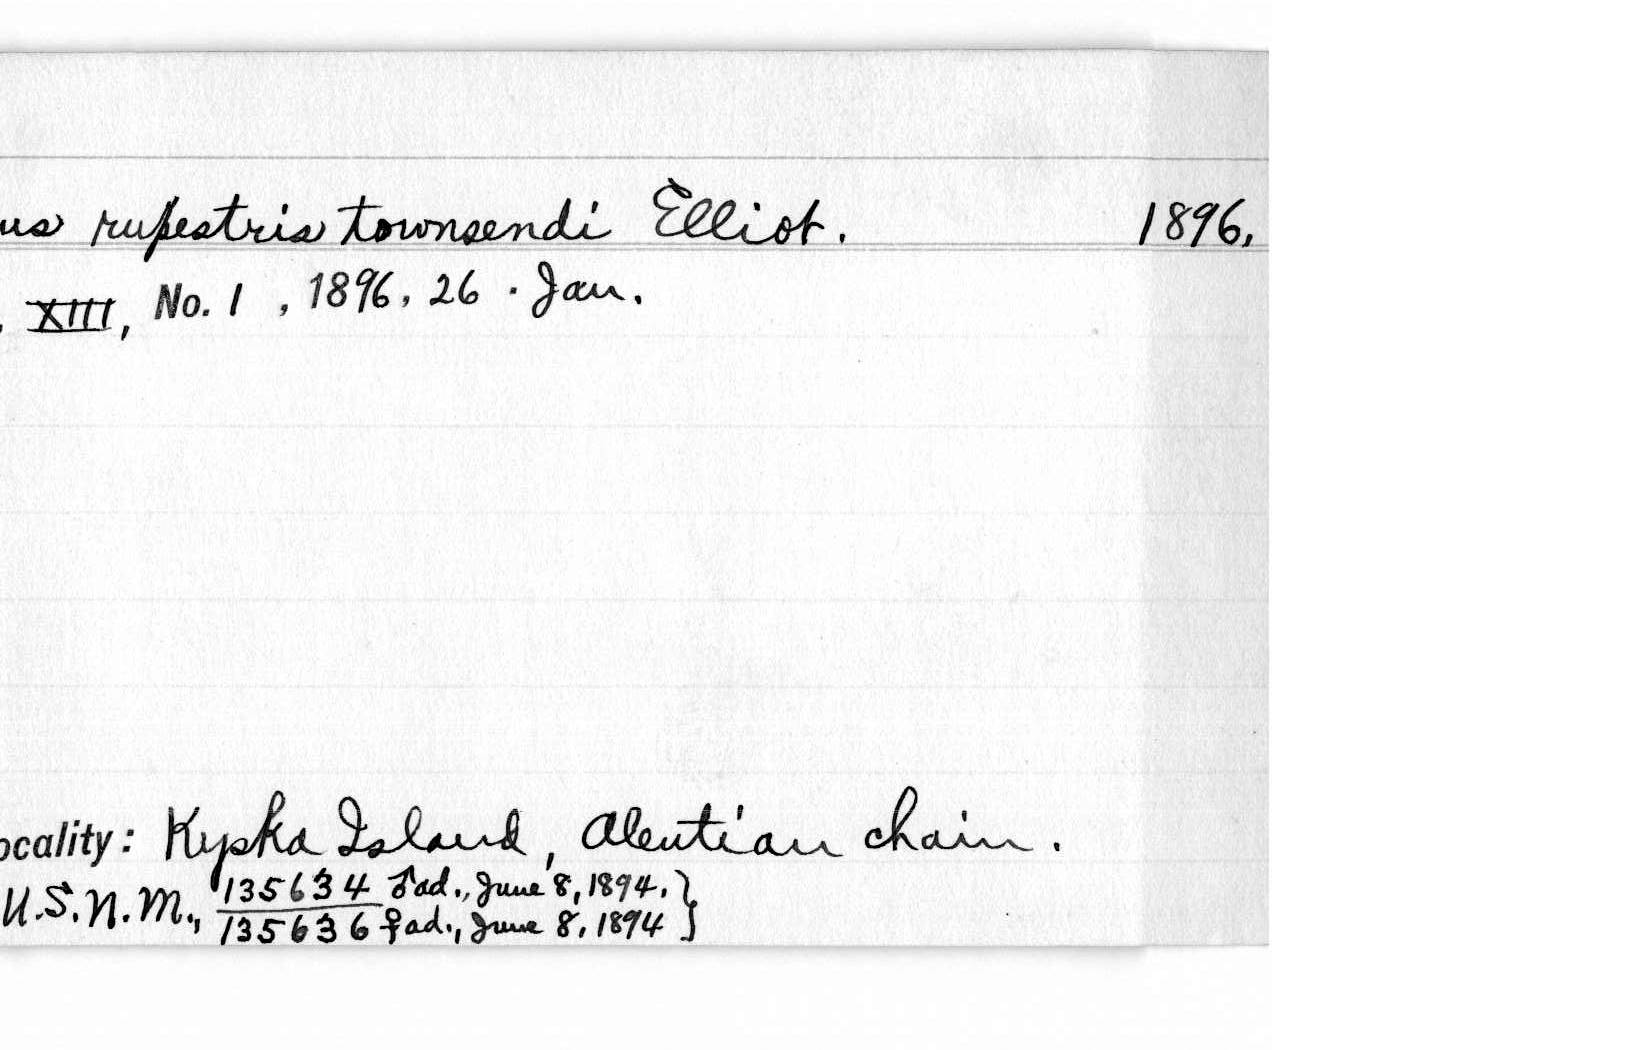 us rupestris townsendi Elliot. 1896,
, XIII, No. 1 , 1896, 26 . Jan.
ocality: Kyska Island, Aleutian chain.
U.S.N.M., 135634 ♂ad., June 8, 1894. }
135636 ♀ad., June 8, 1894 }